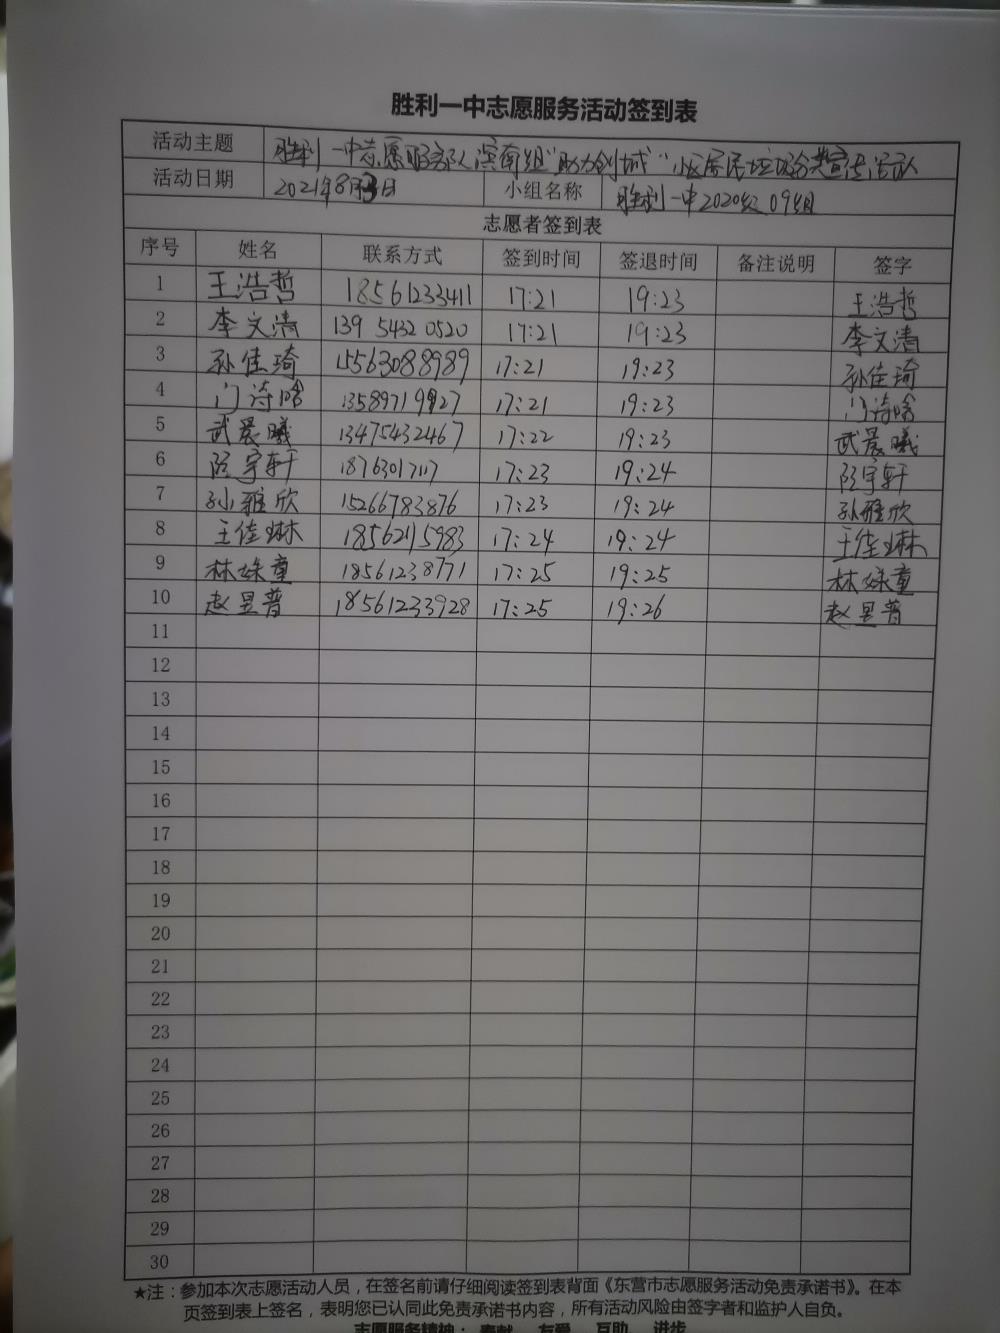 胜利一中志愿服务活动签到表
活动主题 胜利一中志愿服务队滨南组“助力创城”小区居民垃圾分类宣传活动
活动日期 2021年8月3日 小组名称 胜利一中2020级09组
志愿者签到表
序号 姓名 联系方式 签到时间 签退时间 备注说明 签字
1 王浩哲 18561233411 17:21 19:23 王浩哲
2 李文清 139 5432 0520 17:21 19:23 李文清
3 孙佳琦 15563088989 17:21 19:23 孙佳琦
4 门诗晗 13589719927 17:21 19:23 门诗晗
5 武晨曦 13475432467 17:22 19:23 武晨曦
6 陈宇轩 18763017117 17:23 19:24 陈宇轩
7 孙雅欣 15266783876 17:23 19:24 孙雅欣
8 王佳琳 18562115983 17:24 19:24 王佳琳
9 林姝童 18561238771 17:25 19:25 林姝童
10 赵昱普 18561233928 17:25 19:26 赵昱普
11
12
13
14
15
16
17
18
19
20
21
22
23
24
25
26
27
28
29
30
★注：参加本次志愿活动人员，在签名前请仔细阅读签到表背面《东营市志愿服务活动免责承诺书》。在本
页签到表上签名，表明您已认同此免责承诺书内容，所有活动风险由签字者和监护人自负。
志愿服务精神：奉献 友爱 互助 进步